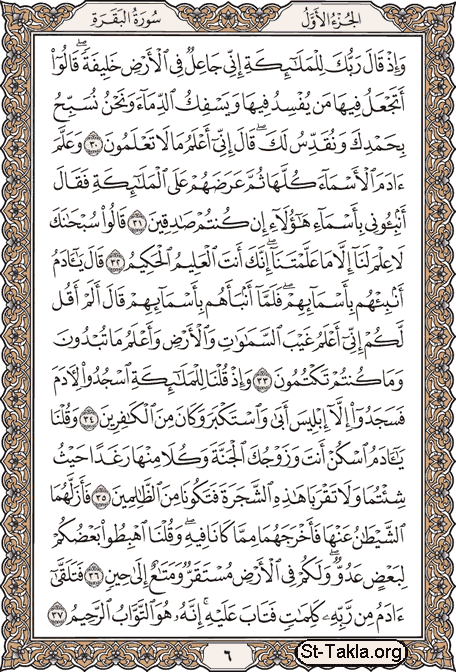 الجزء الأول
سورة البقرة
وَإِذْ قَالَ رَبُّكَ لِلْمَلَٰٓئِكَةِ إِنِّي جَاعِلٌ فِي ٱلْأَرْضِ خَلِيفَةً ۖ قَالُوٓا۟
أَتَجْعَلُ فِيهَا مَن يُفْسِدُ فِيهَا وَيَسْفِكُ ٱلدِّمَآءَ وَنَحْنُ نُسَبِّحُ
بِحَمْدِكَ وَنُقَدِّسُ لَكَ ۖ قَالَ إِنِّيٓ أَعْلَمُ مَا لَا تَعْلَمُونَ ٣٠ وَعَلَّمَ
ءَادَمَ ٱلْأَسْمَآءَ كُلَّهَا ثُمَّ عَرَضَهُمْ عَلَى ٱلْمَلَٰٓئِكَةِ فَقَالَ
أَنۢبِـُٔونِي بِأَسْمَآءِ هَٰٓؤُلَآءِ إِن كُنتُمْ صَٰدِقِينَ ٣١ قَالُوا۟ سُبْحَٰنَكَ
لَا عِلْمَ لَنَآ إِلَّا مَا عَلَّمْتَنَآ ۖ إِنَّكَ أَنتَ ٱلْعَلِيمُ ٱلْحَكِيمُ ٣٢ قَالَ يَٰٓـَٔادَمُ
أَنۢبِئْهُم بِأَسْمَآئِهِمْ ۖ فَلَمَّآ أَنۢبَأَهُم بِأَسْمَآئِهِمْ قَالَ أَلَمْ أَقُل
لَّكُمْ إِنِّيٓ أَعْلَمُ غَيْبَ ٱلسَّمَٰوَٰتِ وَٱلْأَرْضِ وَأَعْلَمُ مَا تُبْدُونَ
وَمَا كُنتُمْ تَكْتُمُونَ ٣٣ وَإِذْ قُلْنَا لِلْمَلَٰٓئِكَةِ ٱسْجُدُوا۟ لِـَٔادَمَ
فَسَجَدُوٓا۟ إِلَّآ إِبْلِيسَ أَبَىٰ وَٱسْتَكْبَرَ وَكَانَ مِنَ ٱلْكَٰفِرِينَ ٣٤ وَقُلْنَا
يَٰٓـَٔادَمُ ٱسْكُنْ أَنتَ وَزَوْجُكَ ٱلْجَنَّةَ وَكُلَا مِنْهَا رَغَدًا حَيْثُ
شِئْتُمَا وَلَا تَقْرَبَا هَٰذِهِ ٱلشَّجَرَةَ فَتَكُونَا مِنَ ٱلظَّٰلِمِينَ ٣٥ فَأَزَلَّهُمَا
ٱلشَّيْطَٰنُ عَنْهَا فَأَخْرَجَهُمَا مِمَّا كَانَا فِيهِ ۖ وَقُلْنَا ٱهْبِطُوا۟ بَعْضُكُمْ
لِبَعْضٍ عَدُوٌّ ۖ وَلَكُمْ فِي ٱلْأَرْضِ مُسْتَقَرٌّ وَمَتَٰعٌ إِلَىٰ حِينٍ ٣٦ فَتَلَقَّىٰٓ
ءَادَمُ مِن رَّبِّهِۦ كَلِمَٰتٍ فَتَابَ عَلَيْهِ ۚ إِنَّهُۥ هُوَ ٱلتَّوَّابُ ٱلرَّحِيمُ ٣٧
٦
St-Takla.org